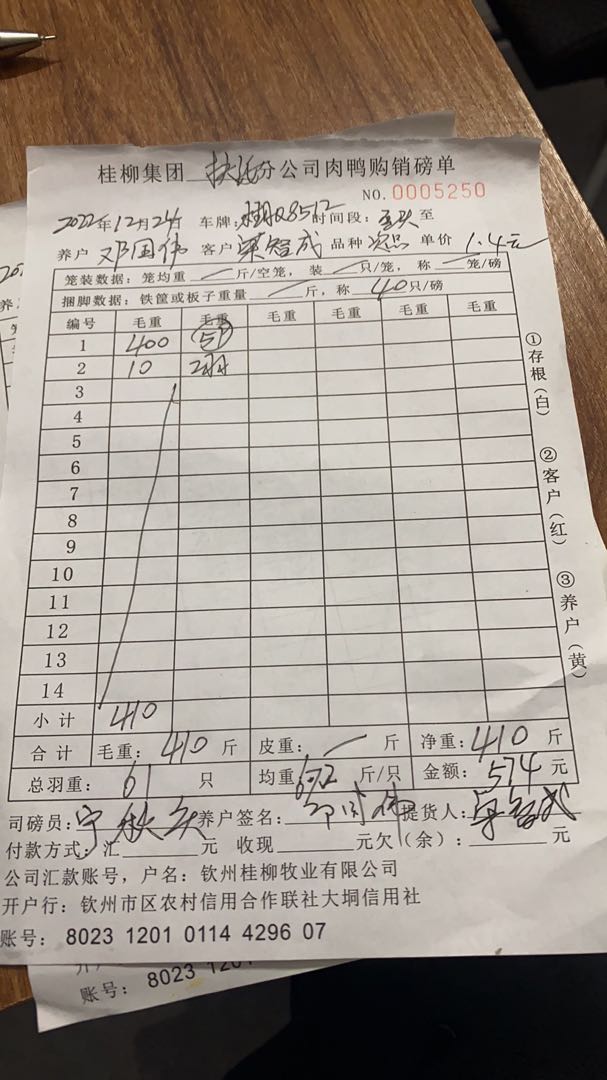 桂柳集团 分公司肉鸭购销磅单
NO.0005250
2022年12月24日 车牌: Q8512 时间段: 至
养户 邓国伟 客户 梁智成 品种 次品 单价 1.4元
笼装数据: 笼均重 斤/空笼, 装 只/笼, 称 笼/磅
捆脚数据: 铁筐或板子重量 斤, 称 40只/磅
编号 毛重 毛重 毛重 毛重 毛重 毛重
1 400
2 10
3
4
5
6
7
8
9
10
11
12
13
14
小计 410
合计 毛重: 410 斤 皮重: 斤 净重: 410 斤
总羽重: 61 只 均重 6.72 斤/只 金额: 574 元
司磅员: 养户签名: 提货人: 梁智成
付款方式: 汇 元 收现 元欠(余): 元
公司汇款账号, 户名: 钦州桂柳牧业有限公司
开户行: 钦州市区农村信用合作联社大垌信用社
账号: 8023 1201 0114 4296 07
①存根(白) ②客户(红) ③养户(黄)
账号: 8023 1201